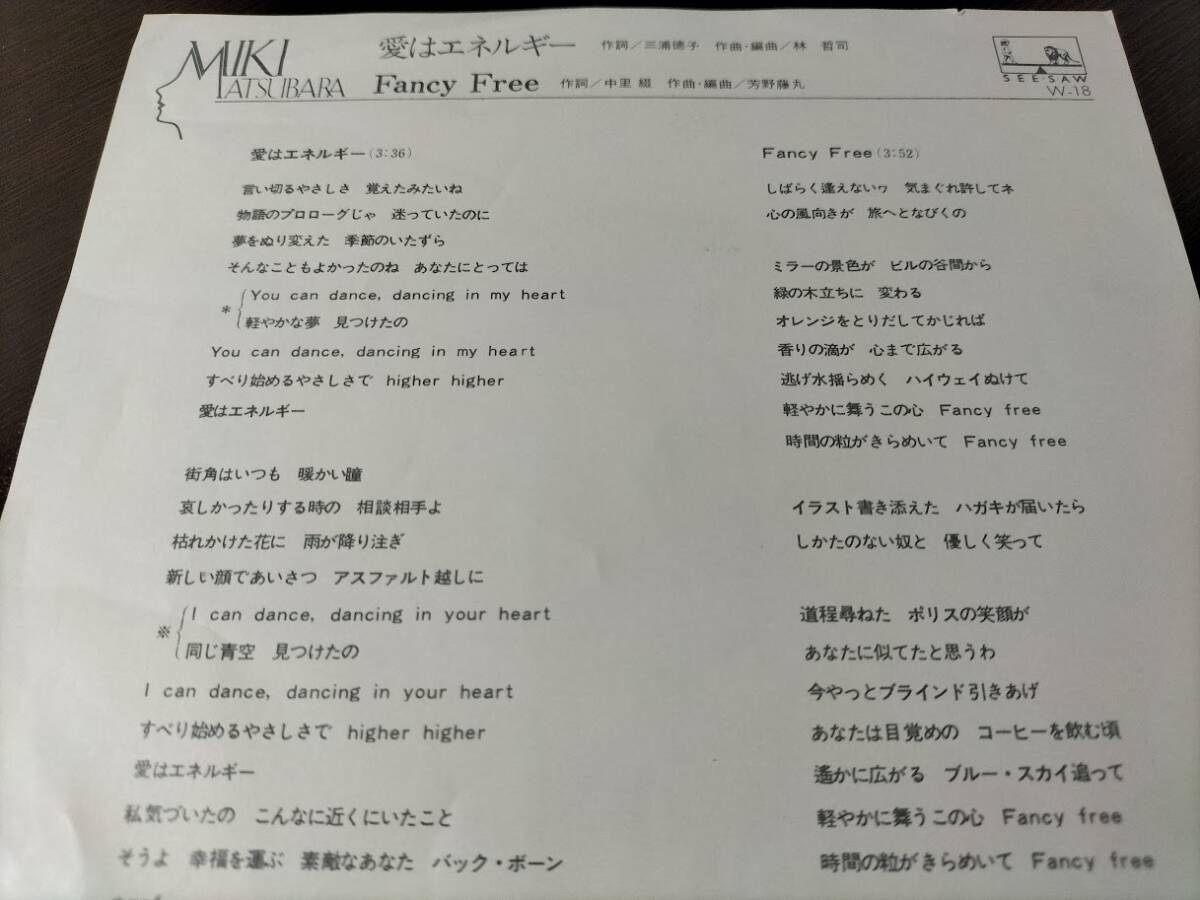 MIKI
MATSUBARA
愛はエネルギー 作詞/三浦徳子 作曲・編曲/林 哲司
Fancy Free 作詞/中里 綴 作曲・編曲/芳野藤丸
SEE・SAW
W-18
愛はエネルギー(3:36)
言い切るやさしさ 覚えたみたいね
物語のプロローグじゃ 迷っていたのに
夢をぬり変えた 季節のいたずら
そんなこともよかったのね あなたにとっては
* You can dance, dancing in my heart
軽やかな夢 見つけたの
You can dance, dancing in my heart
すべり始めるやさしさで higher higher
愛はエネルギー
街角はいつも 暖かい瞳
哀しかったりする時の 相談相手よ
枯れかけた花に 雨が降り注ぎ
新しい顔であいさつ アスファルト越しに
※ I can dance, dancing in your heart
同じ青空 見つけたの
I can dance, dancing in your heart
すべり始めるやさしさで higher higher
愛はエネルギー
私気づいたの こんなに近くにいたこと
そうよ 幸福を運ぶ 素敵なあなた バック・ボーン
Fancy Free(3:52)
しばらく逢えないヮ 気まぐれ許してネ
心の風向きが 旅へとなびくの
ミラーの景色が ビルの谷間から
緑の木立ちに 変わる
オレンジをとりだしてかじれば
香りの滴が 心まで広がる
逃げ水揺らめく ハイウェイぬけて
軽やかに舞うこの心 Fancy free
時間の粒がきらめいて Fancy free
イラスト書き添えた ハガキが届いたら
しかたのない奴と 優しく笑って
道程尋ねた ポリスの笑顔が
あなたに似てたと思うわ
今やっとブラインド引きあげ
あなたは目覚めの コーヒーを飲む頃
遙かに広がる ブルー・スカイ追って
軽やかに舞うこの心 Fancy free
時間の粒がきらめいて Fancy free